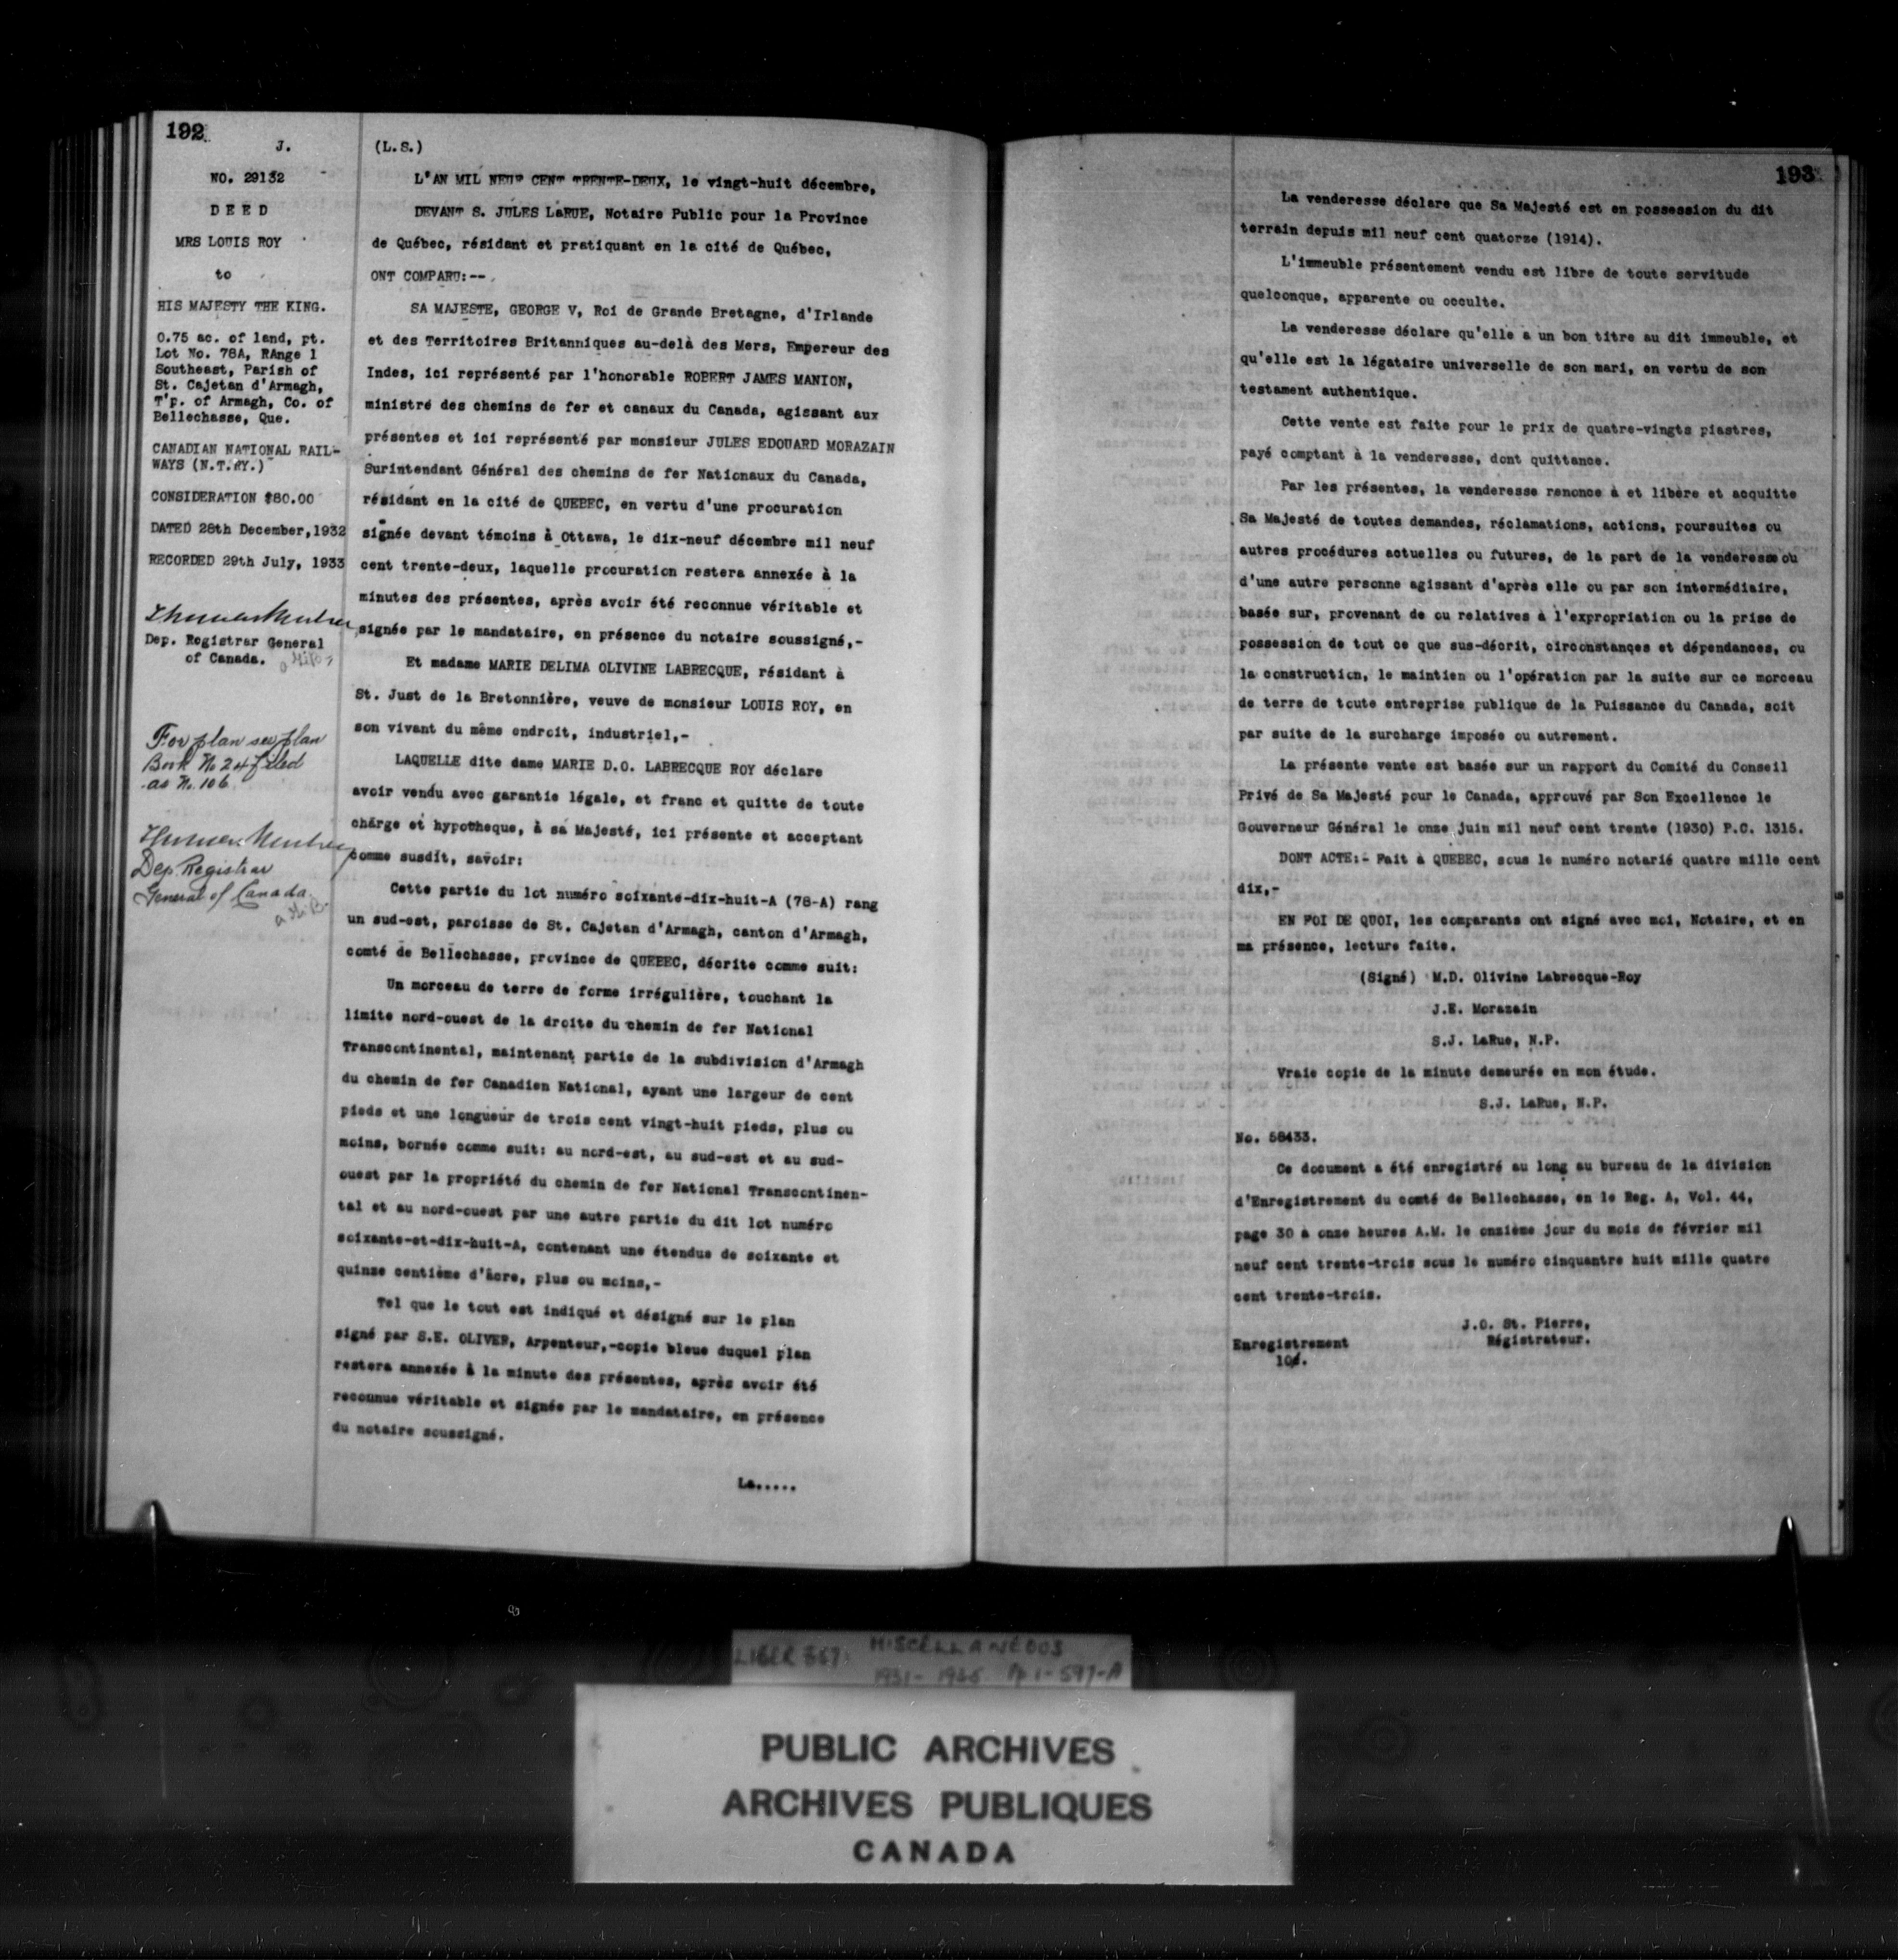 192
J.
NO. 29132
DEED
MRS LOUIS ROY
to
HIS MAJESTY THE KING.
0.75 ac. of land, pt.
Lot No. 78A, RAnge 1
Southeast, Parish of
St. Cajetan d'Armagh,
T'p. of Armagh, Co. of
Bellechasse, Que.
CANADIAN NATIONAL RAIL-
WAYS (N.T.RY.)
CONSIDERATION $80.00
DATED 28th December,1932
RECORDED 29th July, 1933
Dep. Registrar General
of Canada.
For plan see plan
Book No 24 filed
as No. 106
Dep. Registrar
General of Canada.
(L.S.)
L'AN MIL NEUF CENT TRENTE-DEUX, le vingt-huit décembre,
DEVANT S. JULES LaRUE, Notaire Public pour la Province
de Québec, résidant et pratiquant en la cité de Québec,
ONT COMPARU:--
SA MAJESTE, GEORGE V, Roi de Grande Bretagne, d'Irlande
et des Territoires Britanniques au-delà des Mers, Empereur des
Indes, ici représenté par l'honorable ROBERT JAMES MANION,
ministre des chemins de fer et canaux du Canada, agissant aux
présentes et ici représenté par monsieur JULES EDOUARD MORAZAIN
Surintendant Général des chemins de fer Nationaux du Canada,
résidant en la cité de QUEBEC, en vertu d'une procuration
signée devant témoins à Ottawa, le dix-neuf décembre mil neuf
cent trente-deux, laquelle procuration restera annexée à la
minutes des présentes, après avoir été reconnue véritable et
signée par le mandataire, en présence du notaire soussigné,-
Et madame MARIE DELIMA OLIVINE LABRECQUE, résidant à
St. Just de la Bretonnière, veuve de monsieur LOUIS ROY, en
son vivant du même endroit, industriel,-
LAQUELLE dite dame MARIE D.O. LABRECQUE ROY déclare
avoir vendu avec garantie légale, et franc et quitte de toute
charge et hypotheque, à sa Majesté, ici présente et acceptant
comme susdit, savoir:
Cette partie du lot numéro soixante-dix-huit-A (78-A) rang
un sud-est, paroisse de St. Cajetan d'Armagh, canton d'Armagh,
comté de Bellechasse, province de QUEBEC, décrite comme suit:
Un morceau de terre de forme irrégulière, touchant la
limite nord-ouest de la droite du chemin de fer National
Transcontinental, maintenant partie de la subdivision d'Armagh
du chemin de fer Canadien National, ayant une largeur de cent
pieds et une longueur de trois cent vingt-huit pieds, plus ou
moins, bornée comme suit: au nord-est, au sud-est et au sud-
ouest par la propriété du chemin de fer National Transcontinen-
tal et au nord-ouest par une autre partie du dit lot numéro
soixante-et-dix-huit-A, contenant une étendue de soixante et
quinze centième d'âcre, plus ou moins,-
Tel que le tout est indiqué et désigné sur le plan
signé par S.E. OLIVER, Arpenteur,-copie bleue duquel plan
restera annexée à la minute des présentes, après avoir été
reconnue véritable et signée par le mandataire, en présence
du notaire soussigné.
La.....
193
La venderesse déclare que Sa Majesté est en possession du dit
terrain depuis mil neuf cent quatorze (1914).
L'immeuble présentement vendu est libre de toute servitude
quelconque, apparente ou occulte.
La venderesse déclare qu'elle a un bon titre au dit immeuble, et
qu'elle est la légataire universelle de son mari, en vertu de son
testament authentique.
Cette vente est faite pour le prix de quatre-vingts piastres,
payé comptant à la venderesse, dont quittance.
Par les présentes, la venderesse renonce à et libère et acquitte
Sa Majesté de toutes demandes, réclamations, actions, poursuites ou
autres procédures actuelles ou futures, de la part de la venderesse ou
d'une autre personne agissant d'après elle ou par son intermédiaire,
basée sur, provenant de ou relatives à l'expropriation ou la prise de
possession de tout ce que sus-décrit, circonstances et dépendances, ou
la construction, le maintien ou l'opération par la suite sur ce morceau
de terre de toute entreprise publique de la Puissance du Canada, soit
par suite de la surcharge imposée ou autrement.
La présente vente est basée sur un rapport du Comité du Conseil
Privé de Sa Majesté pour le Canada, approuvé par Son Excellence le
Gouverneur Général le onze juin mil neuf cent trente (1930) P.C. 1315.
DONT ACTE:- Fait à QUEBEC, sous le numéro notarié quatre mille cent
dix,-
EN FOI DE QUOI, les comparants ont signé avec moi, Notaire, et en
ma présence, lecture faite.
(Signé) M.D. Olivine Labrecque-Roy
J.E. Morazain
S.J. LaRue, N.P.
Vraie copie de la minute demeurée en mon étude.
S.J. LaRue, N.P.
No. 58433.
Ce document a été enregistré au long au bureau de la division
d'Enregistrement du comté de Bellechasse, en le Reg. A, Vol. 44,
page 30 à onze heures A.M. le onzième jour du mois de février mil
neuf cent trente-trois sous le numéro cinquantre huit mille quatre
cent trente-trois.
J.O. St. Pierre,
Régistrateur.
Enregistrement
10¢.
LIBER 367: MISCELLANEOUS
1931-1935 Pp 1-597-A
PUBLIC ARCHIVES
ARCHIVES PUBLIQUES
CANADA